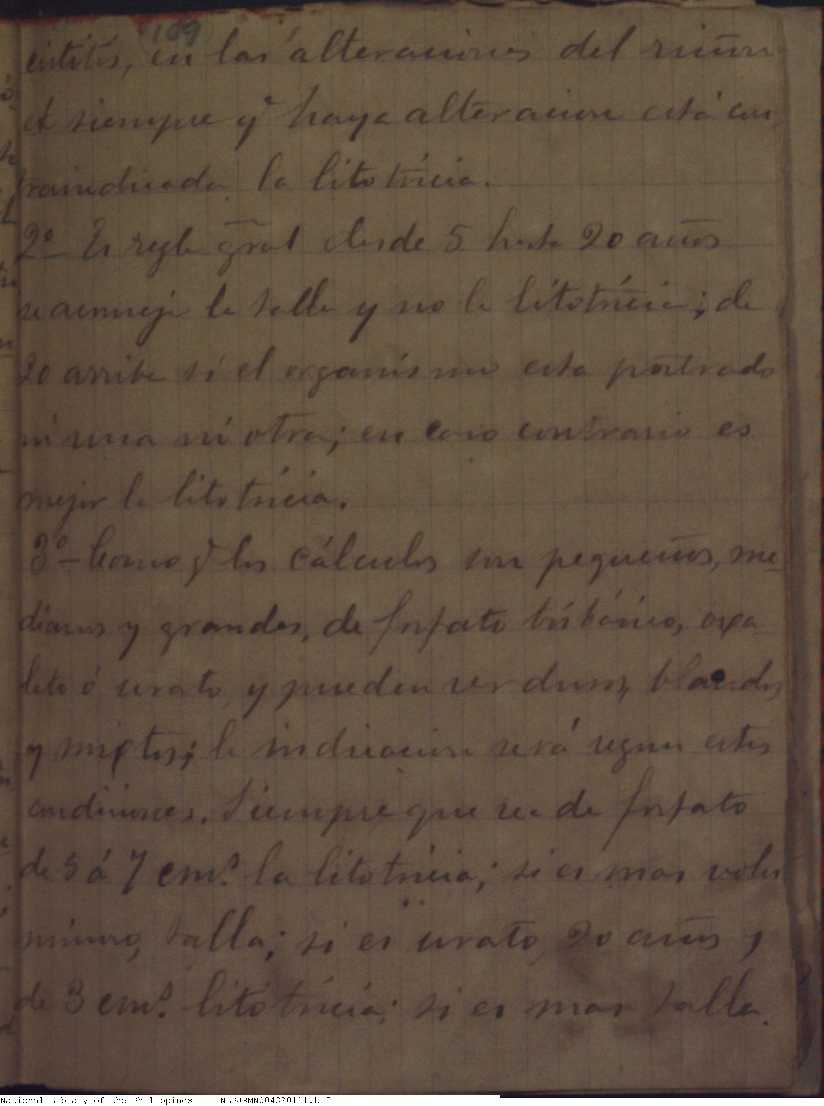 109
cistitis, en las alteraciones del riñon
& siempre qᵉ haya alteracion está con
traindicada la litotricia.
2º- Es regla gral desde 5 hasta 20 años
se aconseja la talla y no la litotricia; de
20 arriba si el organismo esta postrado
ni una ni otra; en caso contrario es
mejor la litotricia.
3º- Como qᵉ los cálculos son pequeños, me-
dianos y grandes, de fosfato tribásico, oxa
lato ó urato, y pueden ser duros, blandos,
y mixtos; la indicacion será segun estas
condiciones. Siempre que sea de fosfato
de 5 á 7 cmˢ. la litotricia; si es mas volu
minoso, talla; si es urato, 20 años y
de 3 cmˢ. litotricia; si es mas talla.
National Library of the Philippines